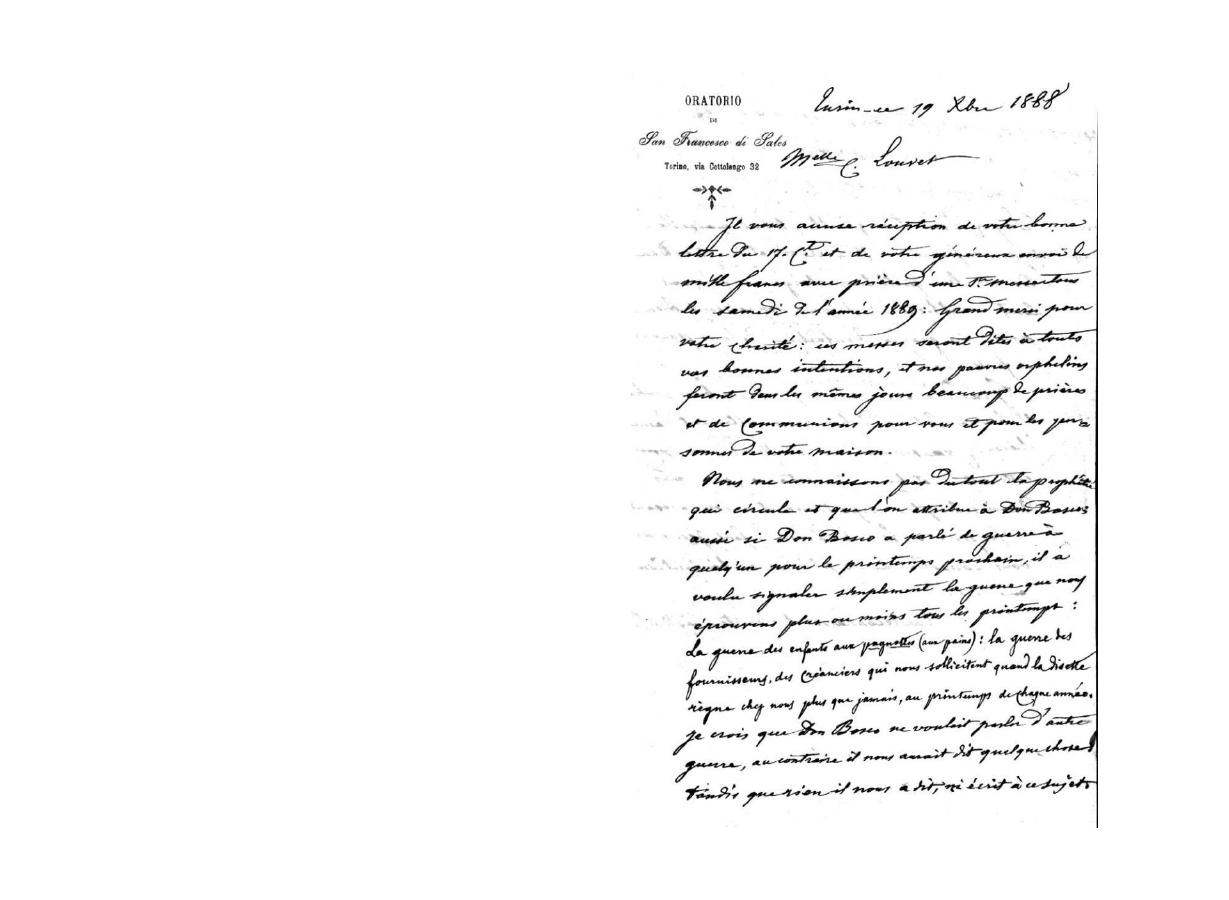 ORATORIO
DI
San Francesco di Sales
Torino, via Cottolengo 32
Turin-ce 19 Xbre 1888
Melle C. Louvet
Je vous accuse réception de votre bonne
lettre du 17 Ct et de votre généreux envoi de
mille francs avec prière d'une Ste messe tous
les samedi de l'année 1889: Grand merci pour
votre charité: ces messes seront dites à touts
vos bonnes intentions, et nos pauvres orphelins
feront dans les mêmes jours beaucoup de prières
et de Communions pour vous et pour les per=
sonnes de votre maison.
Nous ne connaissons pas du tout la prophétie
qui circule et que l'on attribue à Don Bosco:
aussi si Don Bosco a parlé de guerre à
quelqu'un pour le printemps prochain, il a
voulu signaler simplement la guerre que nous
éprouvens plus ou moins tous les printemps:
La guerre des enfants aux pagnottes (aux pains): la guerre des
fournisseurs, des créanciers qui nous sollicitent quand la disette
règne chez nous plus que jamais, au printemps de chaque année.
je crois que Don Bosco ne voulait parler d'autre
guerre, au contraire il nous aurait dit quelque chose
tandis que rien il nous a dit, ni écrit à ce sujet.